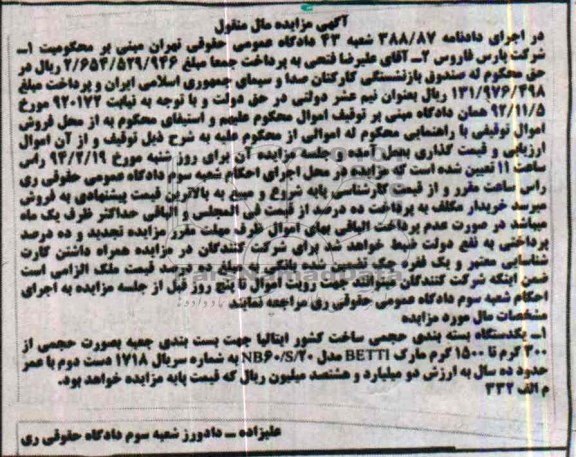 آگهی مزایده مال منقول
در اجرای دادنامه ۳۸۸/۸۷ شعبه ۴۳ دادگاه عمومی حقوقی تهران مبنی بر محکومیت ۱ــ
شرکت پارس فاروس ۲ــ آقای علیرضا فتحی به پرداخت جمعا مبلغ ۲/۶۵۴/۵۲۹/۹۴۶ ریال در
حق محکوم له صندوق بازنشستگی کارکنان صدا و سیمای جمهوری اسلامی ایران و پرداخت مبلغ
۱۳۱/۹۷۶/۴۹۸ ریال بعنوان نیم عشر دولتی در حق دولت و با توجه به نیابت ۹۲۰۱۷۲ مورخ
۹۲/۱۱/۵ همان دادگاه مبنی بر توقیف اموال محکوم علیهم و استیفای محکوم به از محل فروش
اموال توقیفی با راهنمایی محکوم له اموالی از محکوم علیه به شرح ذیل توقیف و از آن اموال
ارزیابی و قیمت گذاری بعمل آمده و جلسه مزایده آن برای روز شنبه مورخ ۹۴/۲/۱۹ راس
ساعت ۱۱ تعیین شده است که مزایده در محل اجرای احکام شعبه سوم دادگاه عمومی حقوقی ری
راس ساعت مقرر و از قیمت کارشناسی پایه شروع و مبیع به بالاترین قیمت پیشنهادی به فروش
میرسد خریدار مکلف به پرداخت ده درصد از قیمت فی المجلس و الباقی حداکثر ظرف یک ماه
میباشد در صورت عدم پرداخت الباقی بهای اموال ظرف مهلت مقرر مزایده تجدید و ده درصد
پرداختی به نفع دولت ضبط خواهد شد برای شرکت کنندگان در مزایده همراه داشتن کارت
شناسایی معتبر و یک فقره چک تضمین شده بانکی به میزان ده درصد قیمت ملک الزامی است
ضمن اینکه شرکت کنندگان میتوانند جهت رویت اموال تا پنج روز قبل از جلسه مزایده به اجرای
احکام شعبه سوم دادگاه عمومی حقوقی ری مراجعه نمایند
مشخصات مال مورد مزایده
۱ــ یکدستگاه بسته بندی حجمی ساخت کشور ایتالیا جهت بست بندی جعبه بصورت حجمی از
۳۰۰ گرم تا ۱۵۰۰ گرم مارک BETTI مدل NB۶۰/S/۲۰ به شماره سریال ۱۷۱۸ دست دوم با عمر
حدود ده سال به ارزش دو میلیارد و هشتصد میلیون ریال که قیمت پایه مزایده خواهد بود.
م الف ۳۳۲
علیزاده ــ دادورز شعبه سوم دادگاه حقوقی ری